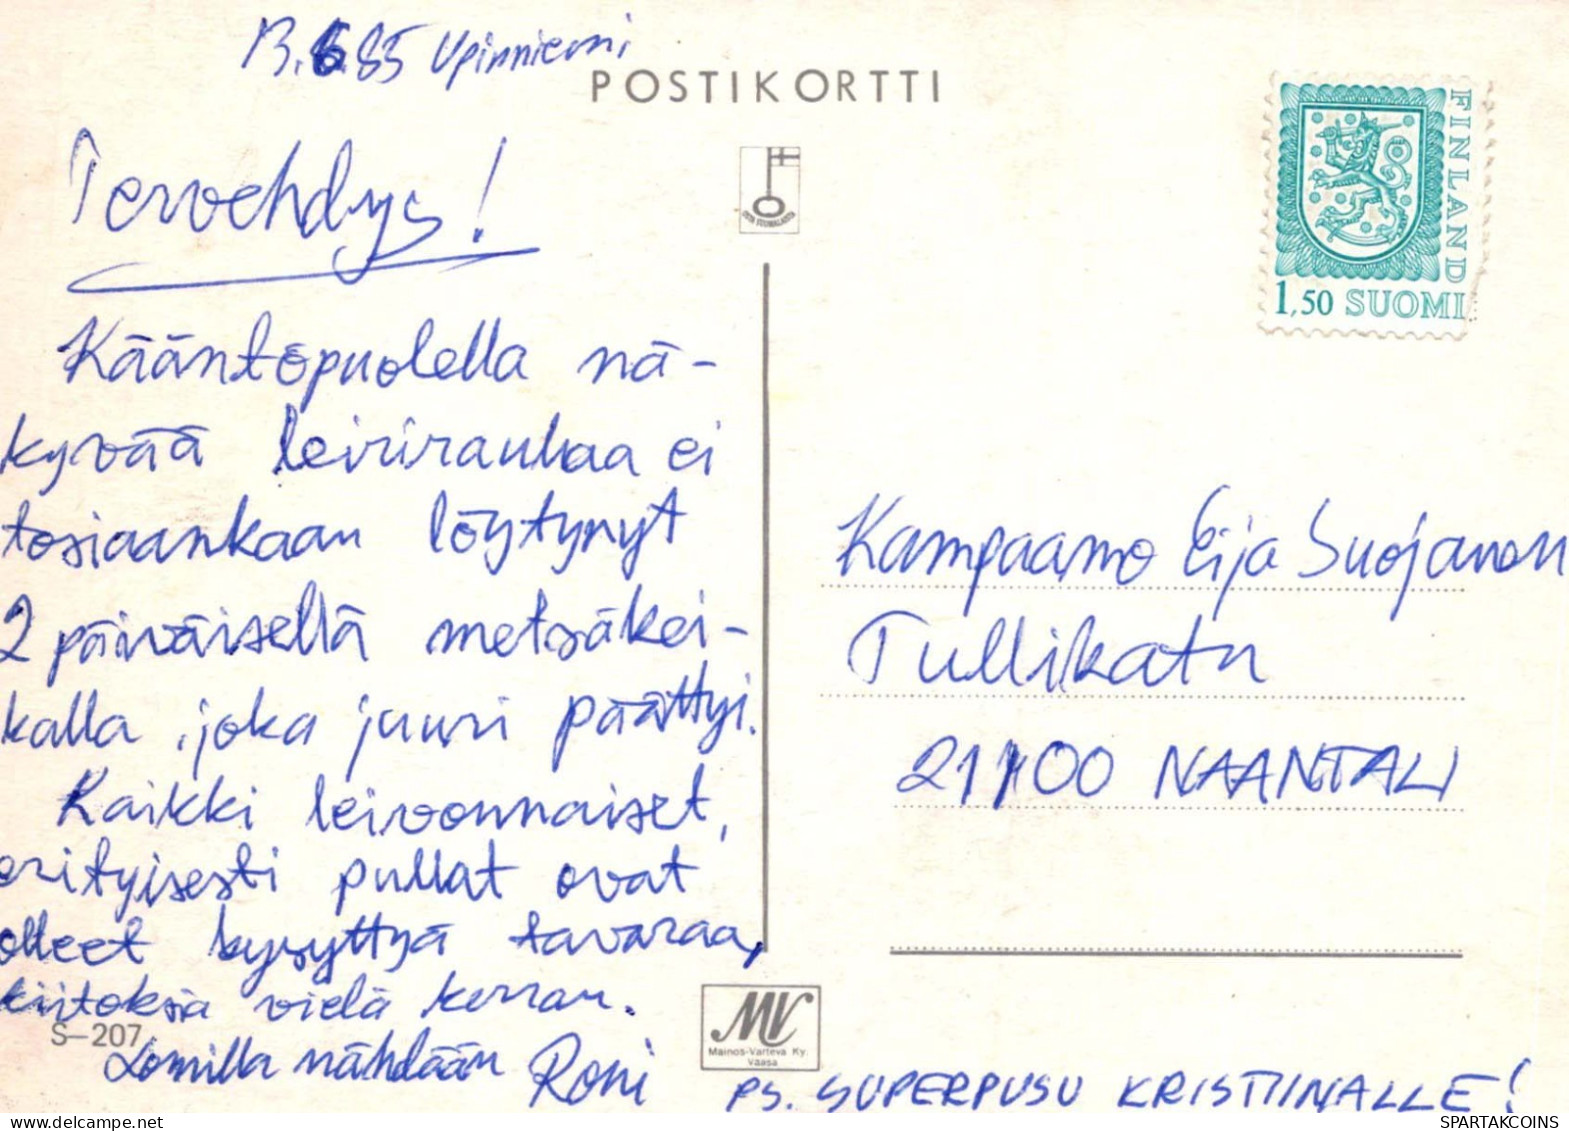 13.6.85 Upinniemi
POSTIKORTTI
FINLAND
1,50 SUOMI
Tervehdys!
Kääntöpuolella nä-
kyvää leirirauhaa ei
tosiaankaan löytynyt
2 päiväiseltä metsäkei-
kalla, joka juuri päättyi.
Kaikki leivonnaiset,
erityisesti pullat ovat
olleet kysyttyä tavaraa,
kiitoksia vielä kerran.
S-207
Lomilla nähdään Roni
Kampaamo Eija Suojanen
Tullikatu
21100 NAANTALI
MV
Mainos-Varteva Ky.
Vaasa
PS. SUPERPUSU KRISTIINALLE!
SPARTAKCOINS
delcampe.net